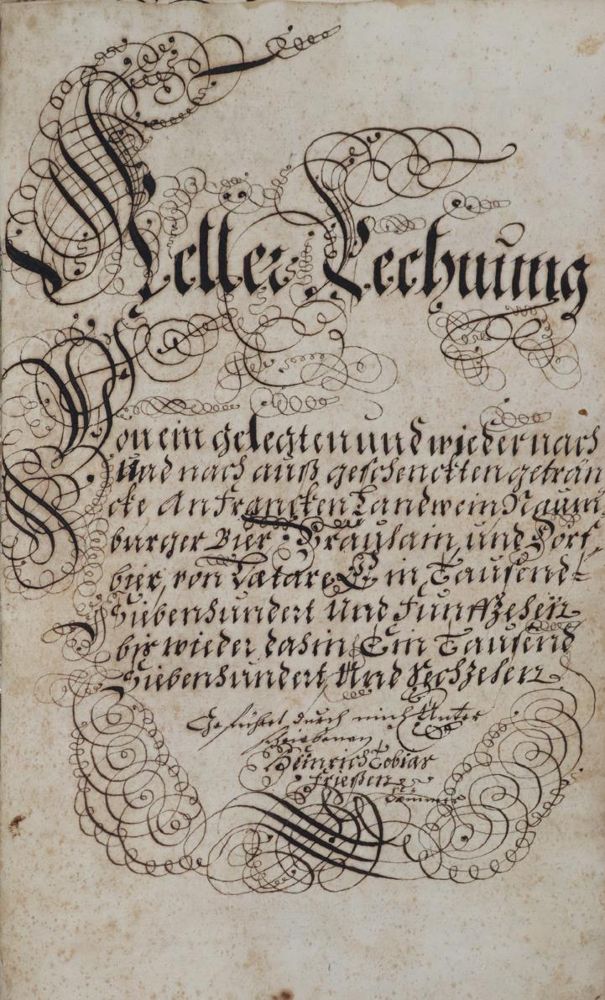 Keller Rechnung
Von ein gelegten und wieder nach
Und nach außgeschenckten geträn
cke An Francken Landwein Naum
burger Bier, und Dorf
bier, von Lætare Ein Tausend
Siebenhundert Und Funffzehen
bis wieder dahin Ein Tausend
Siebenhundert Und Sechzehen
Geführet durch mich Unter
schriebenen
Heinrich Tobias
Frießen